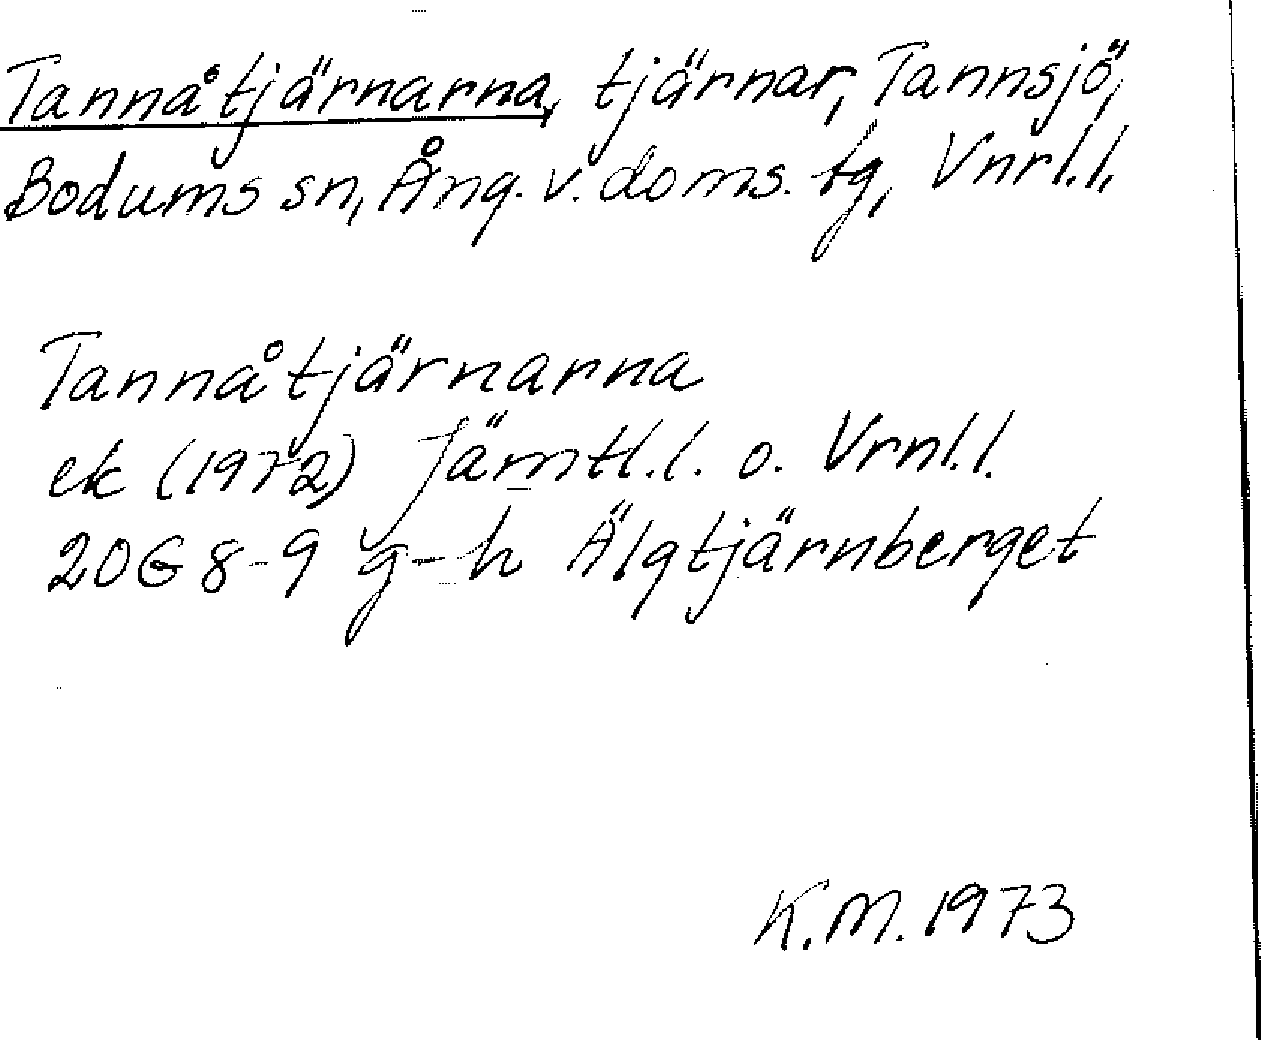 Tannåtjärnarna, tjärnar, Tannsjö,
Bodums sn, Ång. v. doms. tg, Vnrl.l.
Tannåtjärnarna
ek (1972) Jämtl.l. o. Vrnl.l.
20G 8-9 g-h Älgtjärnberget
K.M. 1973